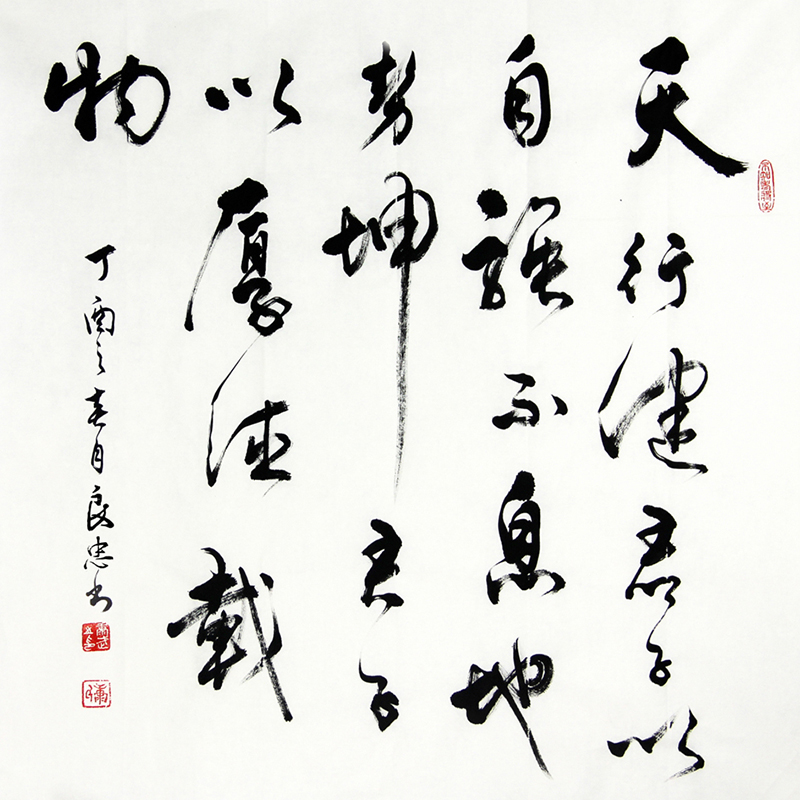 天行健君子以
自强不息地
势坤君子
以厚德载
物
丁酉之春月良忠书